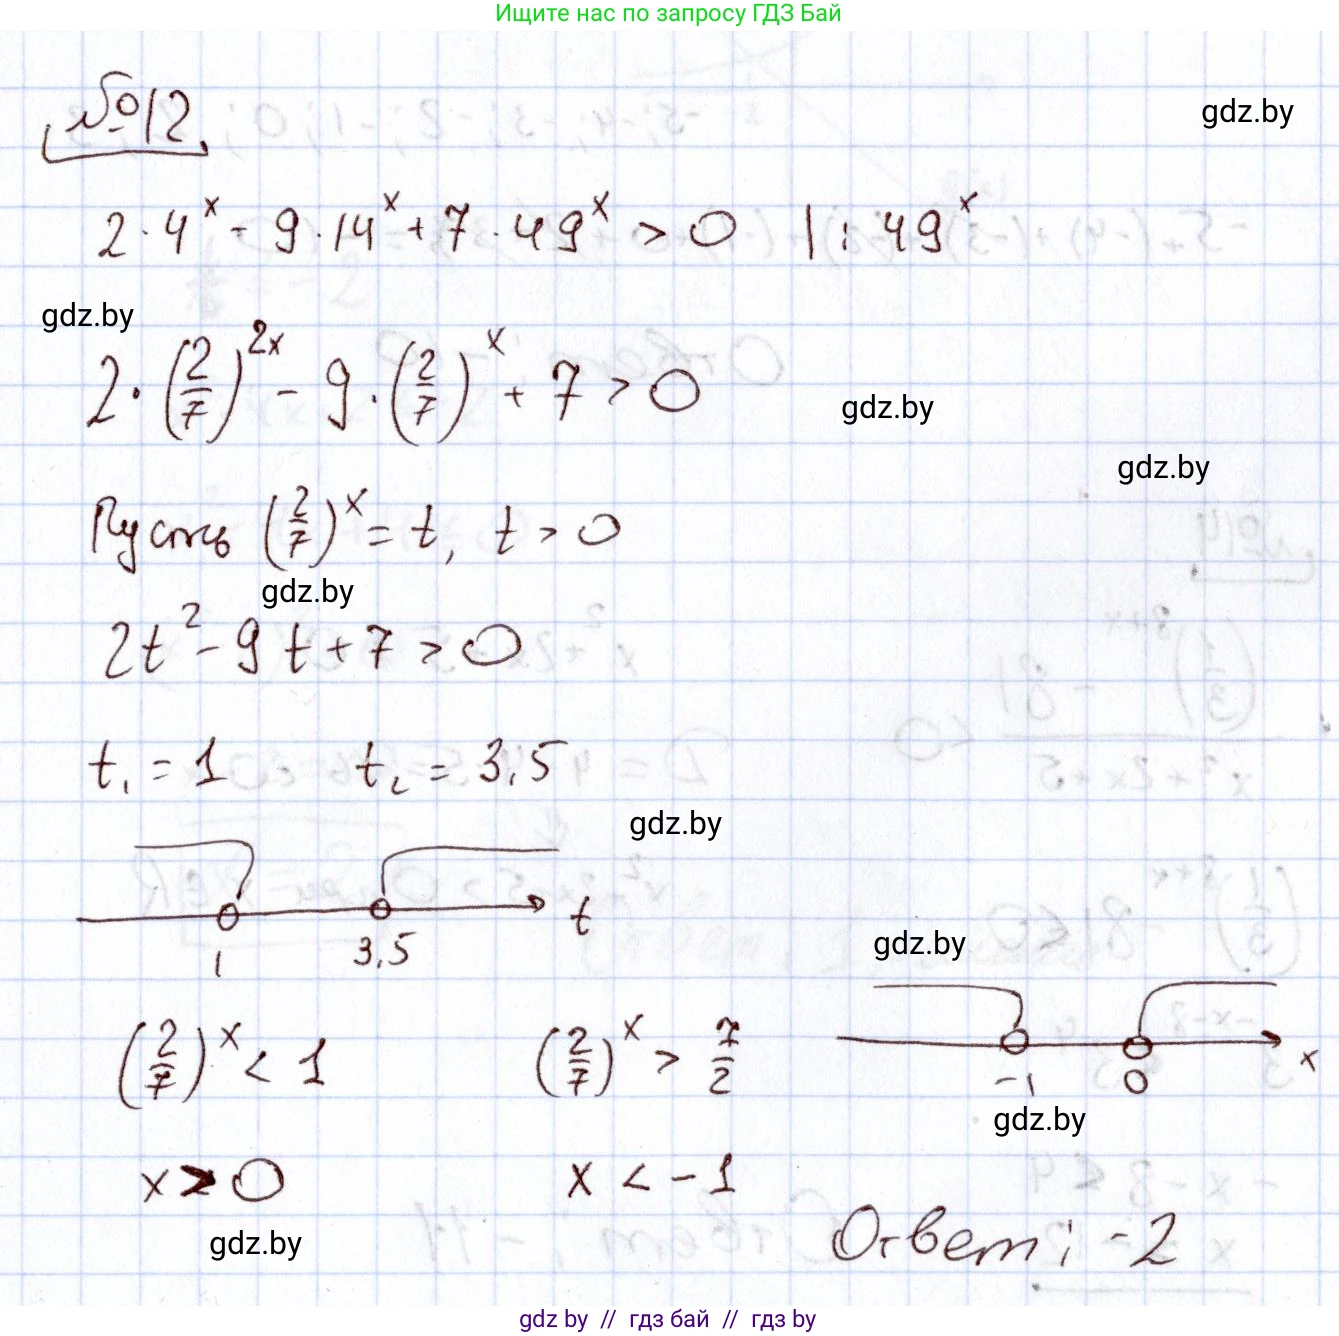 Ищите нас по запросу ГДЗ Бай
№12
gdz.by
2·4^x - 9·14^x + 7·49^x > 0 |:49^x
gdz.by
2·(2/7)^2x - 9·(2/7)^x + 7 > 0
gdz.by
gdz.by
Пусть (2/7)^x = t, t > 0
gdz.by
2t² - 9t + 7 > 0
t₁ = 1 t₂ = 3,5
gdz.by
t
1 3,5
gdz.by
(2/7)^x < 1 (2/7)^x > 7/2
x
-1 0
gdz.by
x > 0 x < -1
gdz.by
Ответ: -2
gdz by // гдз бай // gdz by